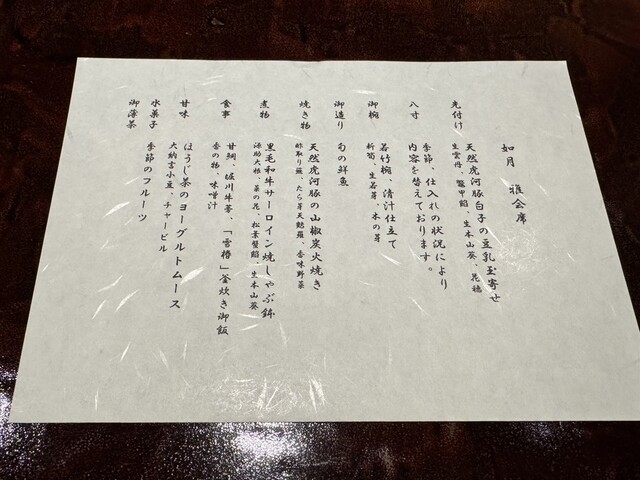 如月 雅会席
先付け
天然虎河豚白子の豆乳玉寄せ
生雲丹、鼈甲餡、生本山葵、花穂
八寸
季節、仕入れの状況により
内容を替えております。
御椀
若竹椀、清汁仕立て
新筍、生若芽、木の芽
御造り
旬の鮮魚
焼き物
天然虎河豚の山椒炭火焼き
酢取り蓮、たら芽天麩羅、香味野菜
煮物
黒毛和牛サーロイン焼しゃぶ鍋
源助大根、菜の花、松葉蟹餡、生本山葵
食事
甘鯛、堀川牛蒡、「雪椿」釜炊き御飯
香の物、味噌汁
甘味
ほうじ茶のヨーグルトムース
大納言小豆、チャービル
水菓子
季節のフルーツ
御薄茶